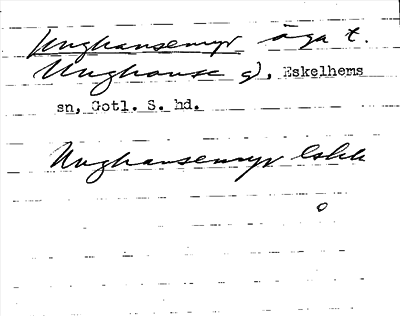 Unghansemyr äga t.
Unghanse g), Eskelhems
sn, Gotl. S. hd.
Unghansemyr lskk